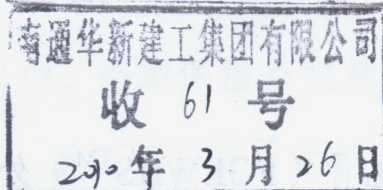 南通华新建工集团有限公司
收 61 号
2010 年 3 月 26 日